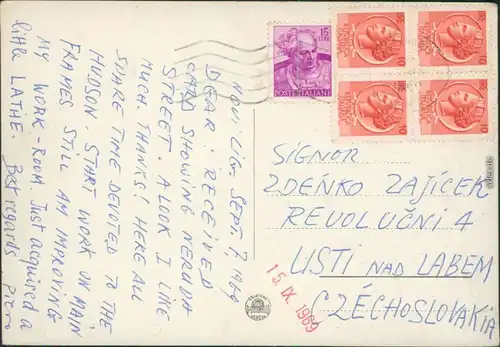 NOVI LIG. SEPT. 7 1969
DEAR. RECEIVED
CARD SHOWING NERUDA
STREET. A LOOK I LIKE
MUCH. THANKS! HERE ALL
SPARE TIME DEVOTED TO THE
HUDSON. START WORK ON MAIN
FRAMES STILL AM IMPROVING
MY WORK-ROOM. Just acquired a
little LATHE. Best regards
Piero
15
LIRE
POSTE ITALIANE
SIGNOR
ZDEŇKO ZAJÍČEK
REVOLUČNÍ 4
USTI NAD LABEM
CZÉCHOSLOVAKIA
15. IX. 1969